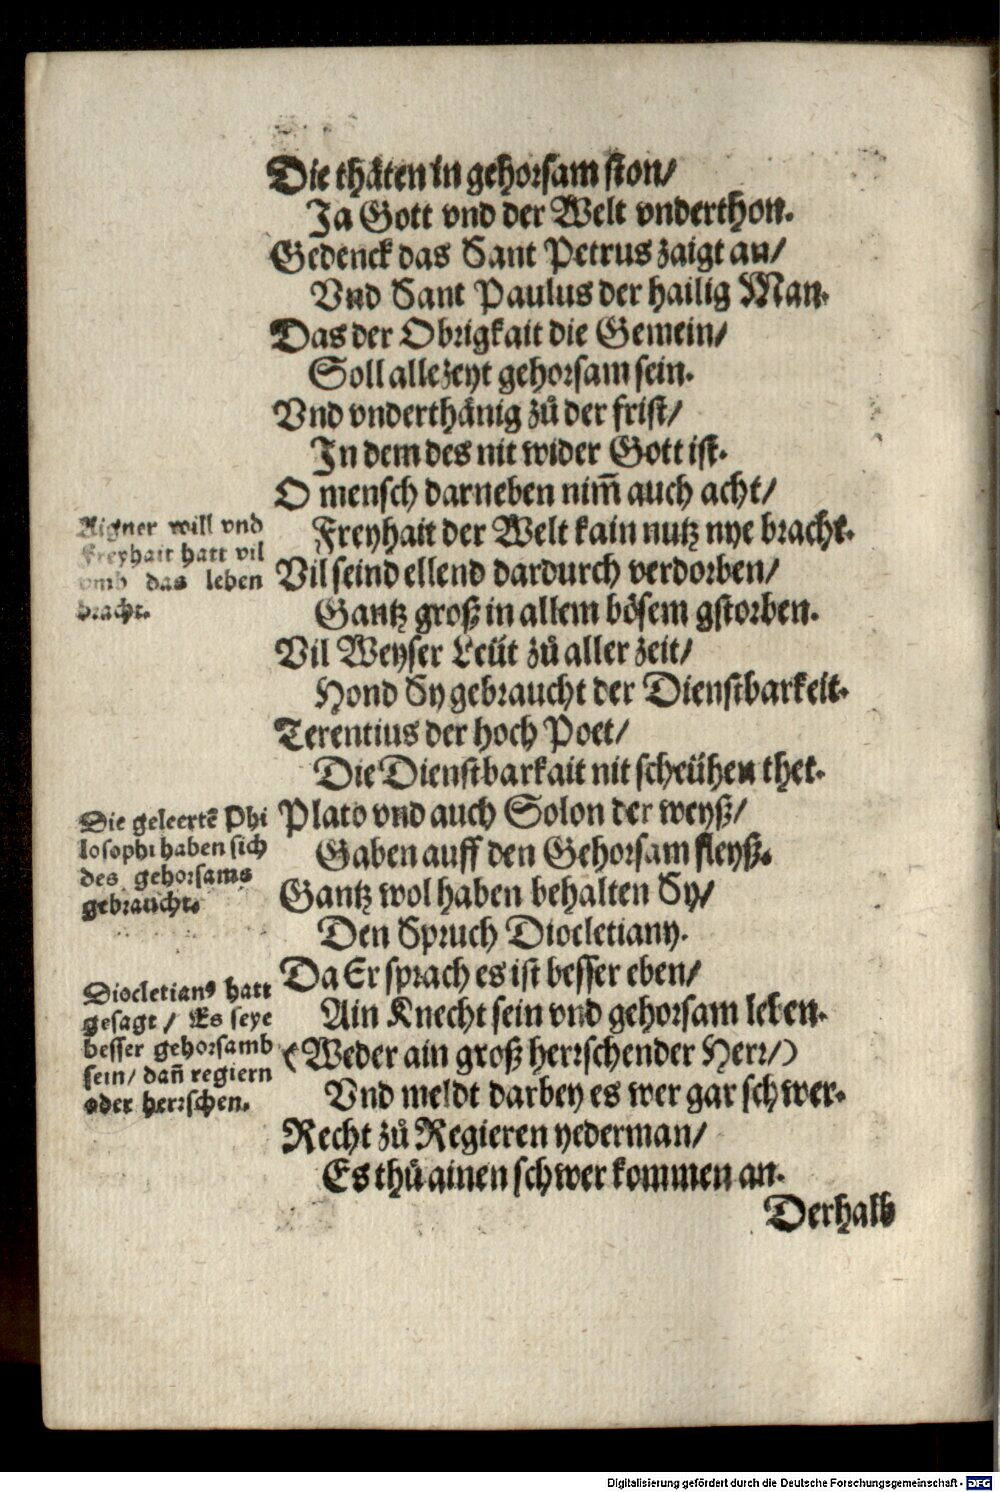 Die thäten in gehorsam ston/
Ja Gott vnd der Welt vnderthon.
Gedenck das Sant Petrus zaigt an/
Vnd Sant Paulus der hailig Man.
Das der Obrigkait die Gemein/
Soll allezeyt gehorsam sein.
Vnd vnderthänig zů der frist/
In dem des nit wider Gott ist.
O mensch darneben nim̄ auch acht/
Freyhait der Welt kain nutz nye bracht.
Vil seind ellend dardurch verdorben/
Gantz groß in allem bösem gstorben.
Vil Weyser Leüt zů aller zeit/
Hond Sy gebraucht der Dienstbarkeit.
Terentius der hoch Poet/
Die Dienstbarkait nit scheühen thet.
Plato vnd auch Solon der weyß/
Gaben auff den Gehorsam fleyß.
Gantz wol haben behalten Sy/
Den Spruch Diocletiany.
Da Er sprach es ist besser eben/
Ain Knecht sein vnd gehorsam leben.
(Weder ain groß herrschender Herr/)
Vnd meldt darbey es wer gar schwer.
Recht zů Regieren yederman/
Es thů ainen schwer kommen an.
Derhalb
Aigner will vnd
Freyhait hatt vil
vmb das leben
bracht.
Die geleertē Phi
losophi haben sich
des gehorsams
gebraucht.
Diocletianꝰ hatt
gesagt / Es seye
besser gehorsamb
sein/ dan̄ regiern
oder herrschen.
Digitalisierung gefördert durch die Deutsche Forschungsgemeinschaft - DFG